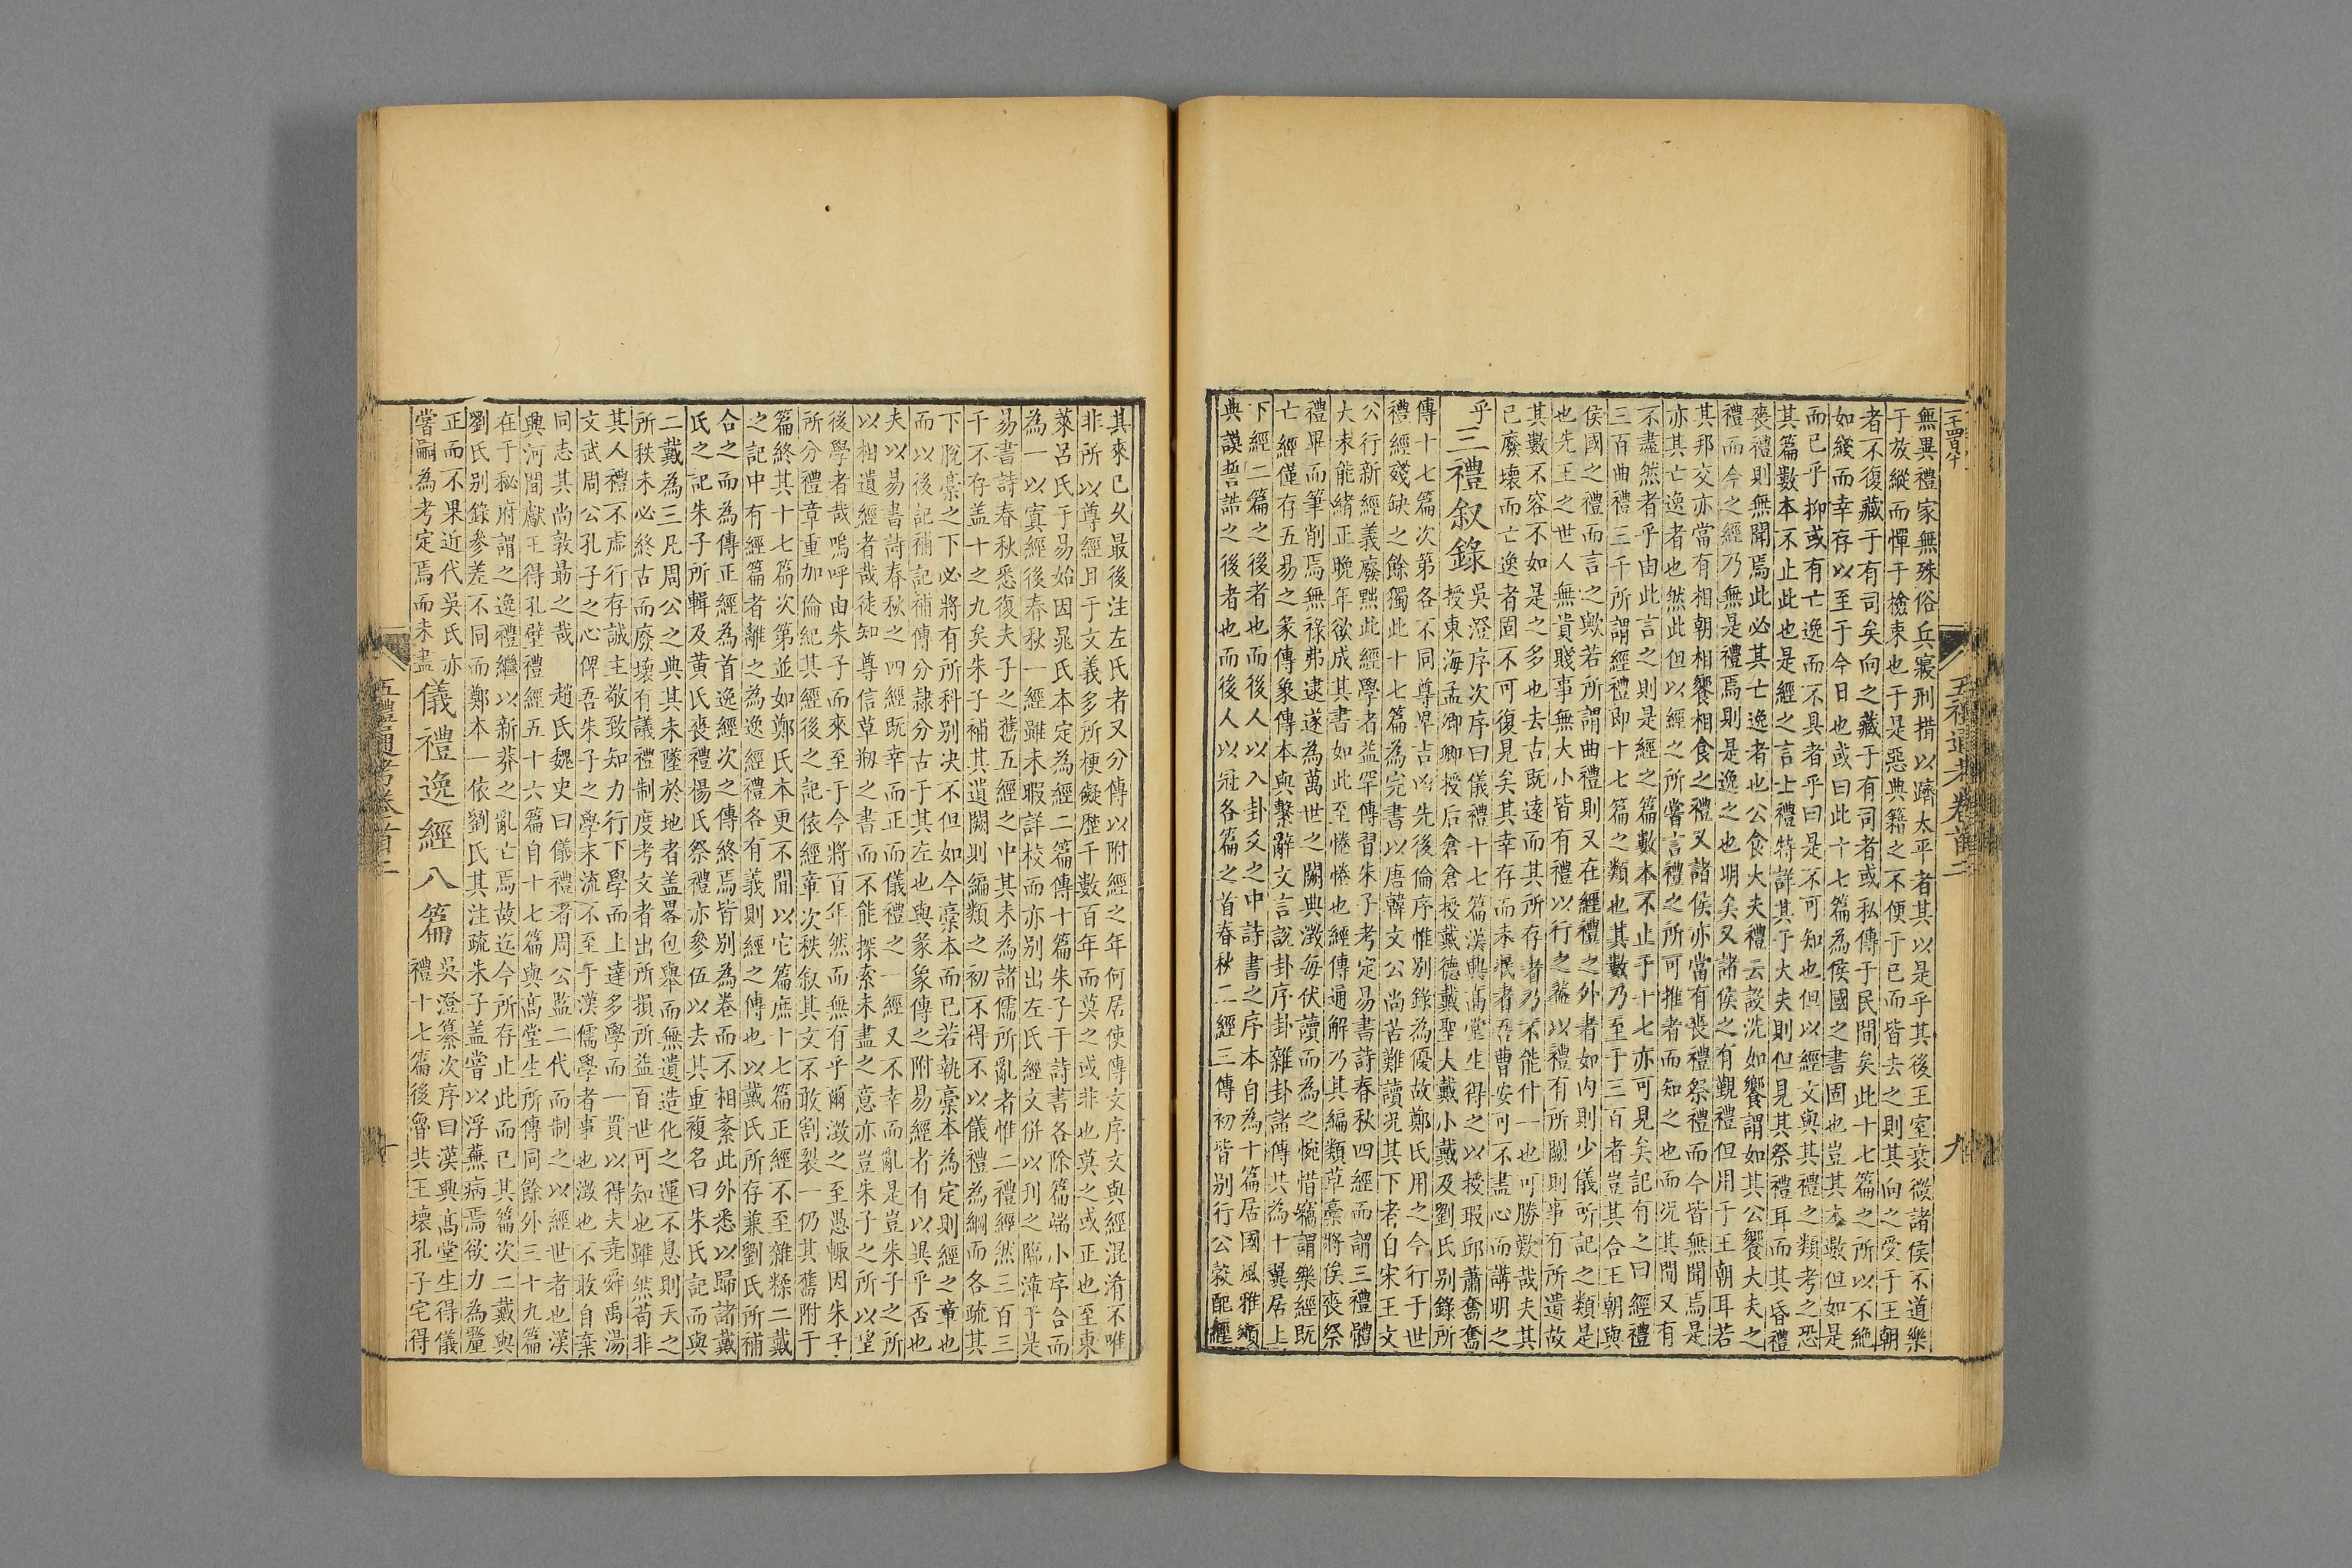 五禮通考卷首二
九
無異禮家無殊俗兵寢刑措以躋太平者其以是乎其後王室衰微諸侯不道樂
于放縱而憚于檢束也于是惡典籍之不便于已而皆去之則其向之受于王朝
者不復藏于有司矣向之藏于有司者或私傳于民間矣此十七篇之所以不絶
如綫而幸存以至于今日也或曰此十七篇為侯國之書固也豈其本數但如是
而已乎抑或有亡逸而不具者乎曰是不可知也但以經文與其禮之類考之恐
其篇數本不止此也是經之言士禮特詳其于大夫則但見其祭禮耳而其昏禮
喪禮則無聞焉此必其亡逸者也公食大夫禮云設洗如饗謂如其公饗大夫之
禮而今之經乃無是禮焉則是逸之也明矣又諸侯之有覲禮但用于王朝耳若
其邦交亦當有相朝相饗相食之禮又諸侯亦當有喪禮祭禮而今皆無聞焉是
亦其亡逸者也然此但以經之所嘗言禮之所可推者而知之也而况其間又有
不盡然者乎由此言之則是經之篇數本不止于十七亦可見矣記有之曰經禮
三百曲禮三千所謂經禮即十七篇之類也其數乃至于三百者豈其合王朝與
侯國之禮而言之歟若所謂曲禮則又在經禮之外者如内則少儀所記之類是
也先王之世人無貴賤事無大小皆有禮以行之蓋以禮有所闕則事有所遺故
其數不容不如是之多也去古既遠而其所存者乃不能什一也可勝歎哉夫其
已廢壞而亡逸者固不可復見矣其幸存而未泯者吾曹安可不盡心而講明之
乎三禮叙錄吳澄序次序曰儀禮十七篇漢興高堂生得之以授瑕邱蕭奮奮
授東海孟卿卿授后倉倉授戴德戴聖大戴小戴及劉氏别錄所
傳十七篇次第各不同尊卑吉凶先後倫序惟别錄為優故鄭氏用之今行于世
禮經殘缺之餘獨此十七篇為完書以唐韓文公尚苦難讀况其下者自宋王文
公行新經義廢黜此經學者益罕傳習朱子考定易書詩春秋四經而謂三禮體
大未能緒正晚年欲成其書如此至惓惓也經傳通解乃其編類草槀將俟喪祭
禮畢而筆削焉無祿弗逮遂為萬世之闕典澂每伏讀而為之惋惜竊謂樂經既
亡經僅存五易之彖傳象傳本與繫辭文言說卦序卦雜卦諸傳共為十翼居上
下經二篇之後者也而後人以入卦爻之中詩書之序本自為十篇居國風雅頌
典謨誓誥之後者也而後人以冠各篇之首春秋二經三傳初皆别行公榖配經
其來已久最後注左氏者又分傳以附經之年何居使傳文序文與經混淆不唯
非所以尊經且于文義多所梗礙歷千數百年而莫之或非也莫之或正也至東
萊呂氏于易始因晁氏本定為經二篇傳十篇朱子于詩書各除篇端小序合而
為一以寘經後春秋一經雖未暇詳校而亦别出左氏經文併以刋之臨漳于是
易書詩春秋悉復夫子之舊五經之中其未為諸儒所亂者惟二禮經然三百三
千不存盖十之九矣朱子補其遺闕則編類之初不得不以儀禮為綱而各疏其
下脫槀之下必將有所科别决不但如今槀本而已若執槀本為定則經之章也
而以後記補記補傳分隸分古于其左也與彖象傳之附易經者有以異乎否也
夫以易書詩春秋之四經既幸而正而儀禮之一經又不幸而亂是豈朱子之所
以相遺經者哉徒知尊信草剏之書而不能探索未盡之意亦豈朱子之所以望
後學者哉嗚呼由朱子而來至于今將百年然而無有乎爾澂之至愚輒因朱子
所分禮章重加倫紀其經後之記依經章次秩叙其文不敢割裂一仍其舊附于
篇終其十七篇次第並如鄭氏本更不間以它篇庶十七篇正經不至雜糅二戴
之記中有經篇者離之為逸經禮各有義則經之傳也以戴氏所存兼劉氏所補
合之而為傳正經為首逸經次之傳終焉皆别為卷而不相紊此外悉以歸諸戴
氏之記朱子所輯及黄氏喪禮楊氏祭禮亦參伍以去其重複名曰朱氏記而與
二戴為三凡周公之典其未墜於地者盖畧包舉而無遺造化之運不息則天之
所秩未必終古而廢壞有議禮制度考文者出所損所益百世可知也雖然苟非
其人禮不虛行存誠主敬致知力行下學而上達多學而一貫以得夫堯舜禹湯
文武周公孔子之心俾吾朱子之學末流不至于漢儒學者事也澂也不敢自棄
同志其尚敦勗之哉　趙氏魏史曰儀禮者周公監二代而制之以經世者也漢
興河間獻王得孔壁禮經五十六篇自十七篇與高堂生所傳同餘外三十九篇
在于秘府謂之逸禮繼以新莽之亂亡焉故迄今所存止此而已其篇次二戴與
劉氏别錄參差不同而鄭本一依劉氏其注疏朱子盖嘗以浮蕪病焉欲力為釐
正而不果近代吳氏亦
嘗嗣為考定焉而未盡儀禮逸經八篇吳澄纂次序曰漢興高堂生得儀
禮十七篇後魯共王壞孔子宅得
五禮通考卷首二
十